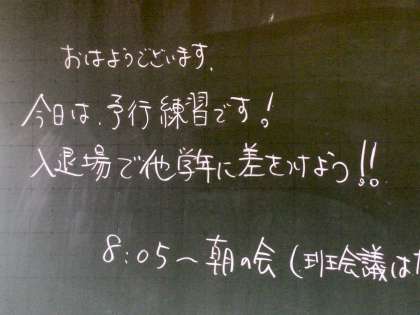 おはようございます.
今日は、予行練習です!
入退場で他学年に差をつけよう!!
8:05〜朝の会(班会議は